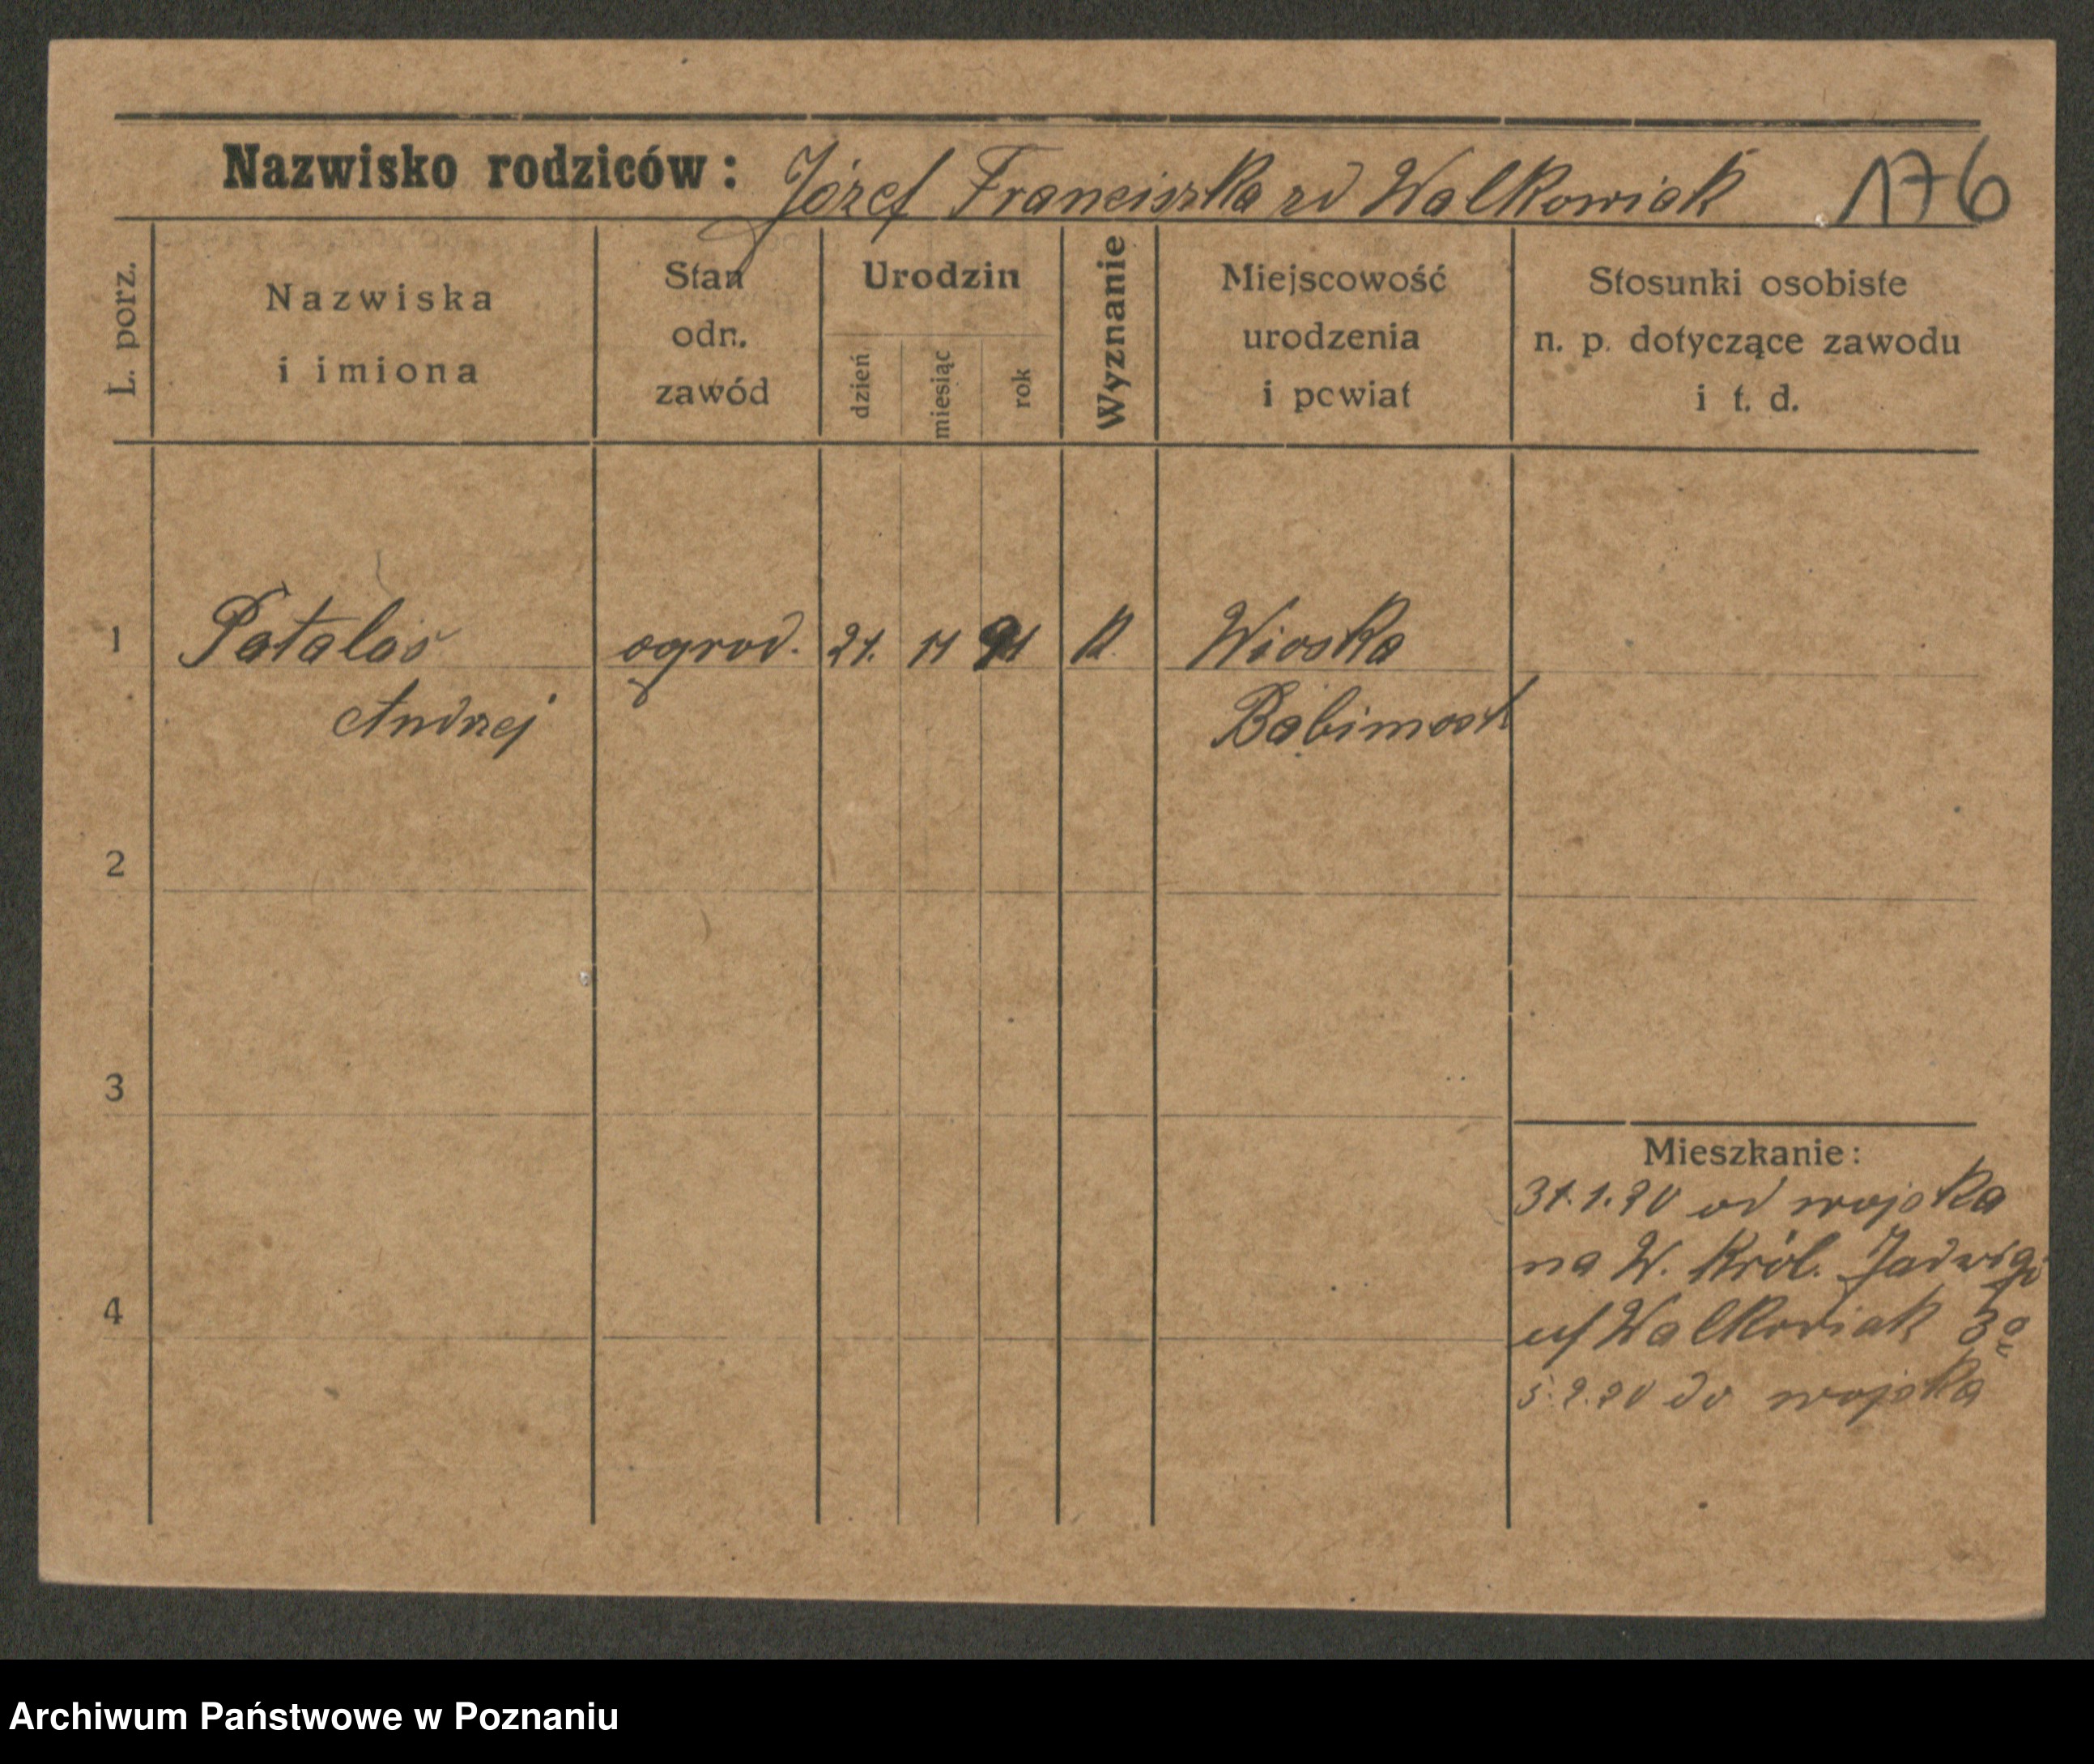 Nazwisko rodziców: Józef Franciszka zd Walkowiak 176
L. porz.
Nazwiska
i imiona
Stan
odn.
zawód
Urodzin
dzień
miesiąc
rok
Wyznanie
Miejscowość
urodzenia
i powiat
Stosunki osobiste
n. p. dotyczące zawodu
i t. d.
1 Patalas ogrod. 21. 11 91 k. Wioska
Andrzej Babimost
2
3
Mieszkanie:
31.1.20 od wojska
na W. Król. Jadwigi
4
Walkowiak 3a
5.2.20 do wojska
Archiwum Państwowe w Poznaniu